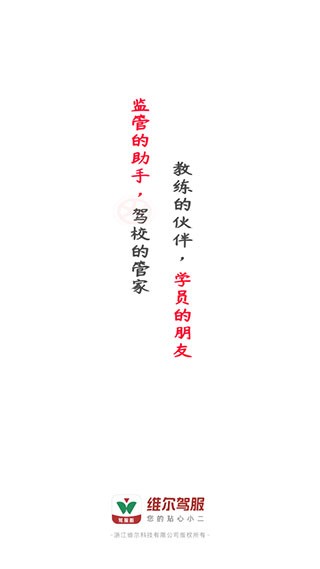 监管的助手，驾校的管家
教练的伙伴，学员的朋友
维尔驾服
驾服
您的贴心小二
·浙江维尔科技有限公司版权所有·